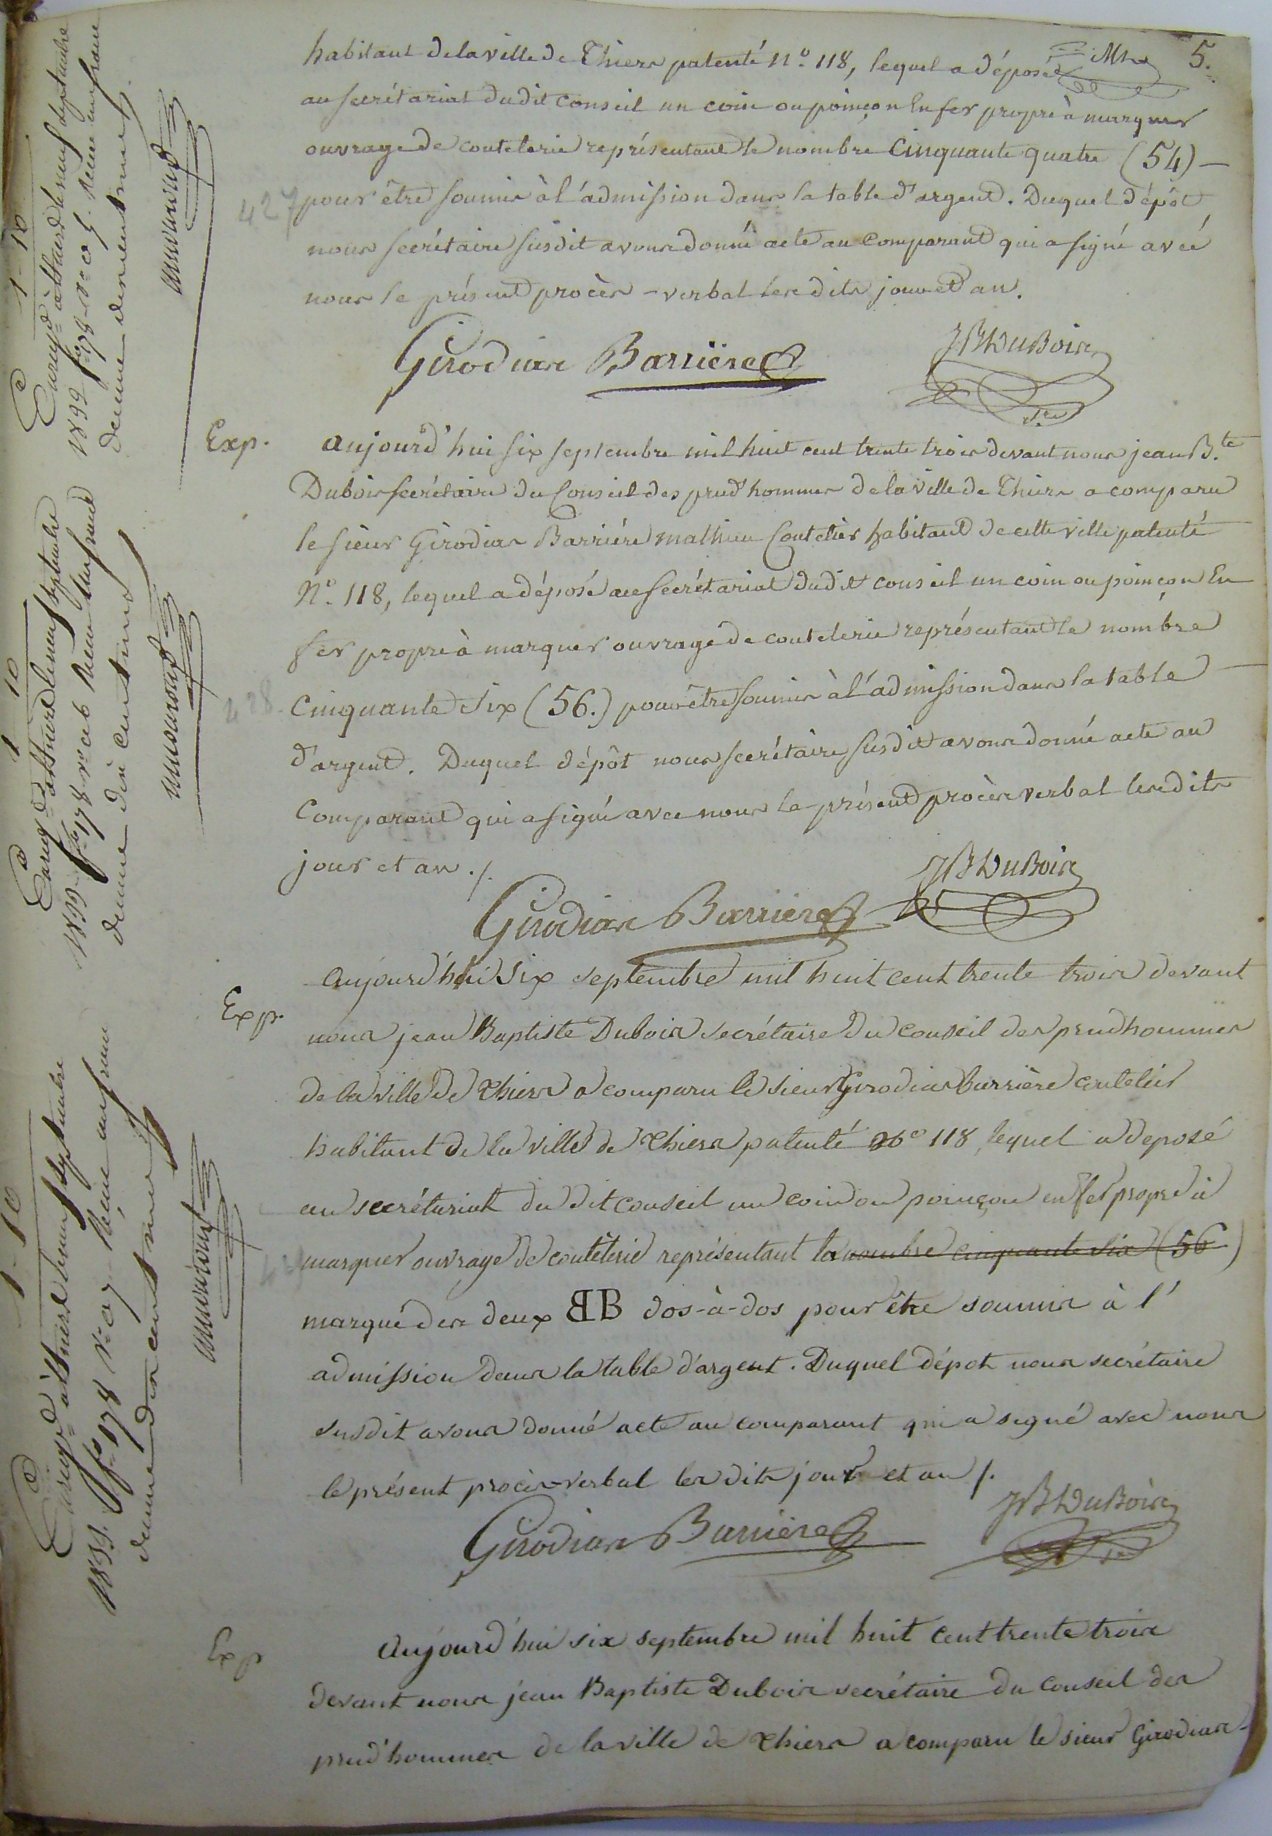 5.
habitant de la ville de Thiers patenté N.º 118, lequel a déposé
au secrétariat dudit conseil un coin ou poinçon En fer propre à marquer
ouvrage de coutelerie représentant le nombre Cinquante quatre (54) —
427
pour être soumis à l'admission dans la table d'argent. Duquel dépôt
nous secrétaire susdit avons donné acte au Comparant qui a signé avec
nous le présent procès-verbal les dits jour et an.
Girodias Barrière JBDuBois
Sre
Exp.
Aujourd'hui six septembre mil huit cent trente trois devant nous jean B.te
Dubois secrétaire du Conseil des prud'hommes de la ville de Thiers a comparu
le sieur Girodias Barrière mathieu Coutelier habitant de cette ville patenté
Nº. 118, lequel a déposé au secrétariat dudit conseil un coin ou poinçon En
fer propre à marquer ouvrage de coutelerie représentant le nombre
428
Cinquante Six (56.) pour être soumis à l'admission dans la table
d'argent. Duquel dépôt nous secrétaire susdit avons donné acte au
Comparant qui a signé avec nous le présent procès verbal les dits
jour et an ./.
Girodias Barrière JBDuBois
Exp.
Aujourd'hui six septembre mil huit cent trente trois devant
nous jean Baptiste Dubois secrétaire du conseil des prudhommes
de la ville de Thiers a comparu le sieur Girodias Barrière coutelier
habitant de la ville de Thiers patenté Nº 118, lequel a deposé
au secrétariat du dit conseil un coin ou poinçon en fer propre à
marquer ouvrage de coutelerie représentant le nombre cinquante six (56)
marqué des deux BB dos-à-dos pour être soumis à l'
admission dans la table d'argent. Duquel dépot nous secrétaire
susdit avons donné acte au comparant qui a signé avec nous
le présent procès-verbal les dits jour et an /.
Girodias Barrière JBDuBois
Sre
Exp
Aujourd'hui six septembre mil huit cent trente trois
devant nous jean Baptiste Dubois secrétaire du conseil des
prud'hommes de la ville de Thiers a comparu le sieur Girodias-
1-10
Enregd à thiers le neuf septembre
1833 fº 178 Rº c 5. Reçu un franc
decime dix centimes.
1-10
Enregd à thiers le neuf septembre
1833 fº 178 Rº c 6 Reçu un franc
decime dix centimes
1-10
Enregd à thiers le neuf septembre
1833. fº 178 Rº c 7 Reçu un franc
decime dix centimes